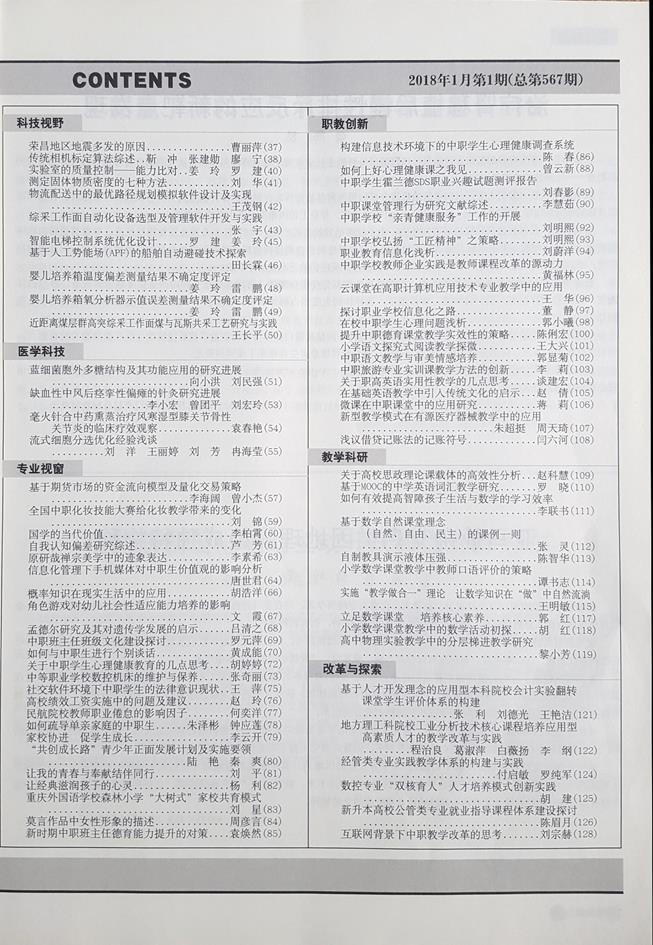 CONTENTS
2018年1月第1期(总第567期)
科技视野
荣昌地区地震多发的原因................曹丽萍(37)
传统相机标定算法综述..靳 冲 张建勋 廖 宁(38)
实验室的质量控制——能力比对..姜 玲 罗 建(40)
测定固体物质密度的七种方法............刘 华(41)
物流配送中的最优路径规划模拟软件设计及实现
................................王茂钢(42)
综采工作面自动化设备选型及管理软件开发与实践
................................张 宇(43)
智能电梯控制系统优化设计......罗 建 姜 玲(45)
基于人工势能场(APF)的船舶自动避碰技术探索
................................田长霖(46)
婴儿培养箱温度偏差测量结果不确定度评定
........................姜 玲 雷 鹏(48)
婴儿培养箱氧分析器示值误差测量结果不确定度评定
........................姜 玲 雷 鹏(49)
近距离煤层群高突综采工作面煤与瓦斯共采工艺研究与实践
................................王长平(50)
医学科技
蓝细菌胞外多糖结构及其功能应用的研究进展
........................向小洪 刘民强(51)
缺血性中风后痉挛性偏瘫的针灸研究进展
................李小宏 曾团平 刘宏玲(53)
毫火针合中药熏蒸治疗风寒湿型膝关节骨性
关节炎的临床疗效观察................袁春艳(54)
流式细胞分选优化经验浅谈
..........刘 洋 王丽婷 刘 芳 冉海莹(55)
专业视窗
基于期货市场的资金流向模型及量化交易策略
........................李海阔 曾小杰(57)
全国中职化妆技能大赛给化妆教学带来的变化
................................刘 锦(59)
国学的当代价值........................李柏霄(60)
自我认知偏差研究综述..................芦 芳(61)
原研哉禅宗美学中的迹象表达............李素希(63)
信息化管理下手机媒体对中职生价值观的影响分析
................................唐世君(64)
概率知识在现实生活中的应用............胡浩洋(66)
角色游戏对幼儿社会性适应能力培养的影响
................................文 霞(67)
孟德尔研究及其对遗传学发展的启示......吕清之(68)
中职班主任班级文化建设探讨............罗元萍(69)
如何与中职生进行个别谈话..............黄成能(70)
关于中职学生心理健康教育的几点思考....胡婷婷(72)
中等职业学校数控机床的维护与保养......张奇丽(73)
社交软件环境下中职学生的法律意识现状..王 萍(75)
高校绩效工资实施中的问题及建议........赵 玲(76)
民航院校教师职业倦怠的影响因子........何奕洋(77)
如何疏导单亲家庭的中职生......朱泽彬 钟应莲(78)
家校协进 促学生成长..................李云开(79)
“共创成长路”青少年正面发展计划及实施要领
........................陆 艳 秦 爽(80)
让我的青春与奉献结伴同行..............刘 平(81)
让经典滋润孩子的心灵..................杨 利(82)
重庆外国语学校森林小学“大树式”家校共育模式
................................刘 星(83)
莫言作品中女性形象的描述..............周彦言(84)
新时期中职班主任德育能力提升的对策....袁焕然(85)
职教创新
构建信息技术环境下的中职学生心理健康调查系统
................................陈 春(86)
如何上好心理健康课之我见..............曾云新(88)
中职学生霍兰德SDS职业兴趣试题测评报告
................................刘春影(89)
中职课堂管理行为研究文献综述..........李慧茹(90)
中职学校“亲青健康服务”工作的开展
................................刘明熙(92)
中职学校弘扬“工匠精神”之策略........刘明熙(93)
职业教育信息化浅析....................刘蔚洋(94)
中职学校教师企业实践是教师课程改革的源动力
................................黄福林(95)
云课堂在高职计算机应用技术专业教学中的应用
................................王 华(96)
探讨职业学校信息化之路................董 静(97)
在校中职学生心理问题浅析..............郭小曦(98)
提升中职德育课堂教学实效性的策略.....陈俐宏(100)
小学语文探究式阅读教学探微...........王大兴(101)
中职语文教学与审美情感培养...........郭显菊(102)
中职旅游专业实训课教学方法的创新.....李 莉(103)
关于职高英语实用性教学的几点思考.....谈建宏(104)
在基础英语教学中引人传统文化的启示...赵 倩(105)
微课在中职课堂中的应用研究...........蒋 莉(106)
新型教学模式在有源医疗器械教学中的应用
.......................朱超挺 周天琦(107)
浅议借贷记账法的记账符号.............闫六河(108)
教学科研
关于高校思政理论课载体的高效性分析...赵科慧(109)
基于MOOC的中学英语词汇教学研究.......罗 晓(110)
如何有效提高智障孩子生活与数学的学习效率
...............................李联书(111)
基于数学自然课堂理念
(自然、自由、民主)的课例一则
...............................张 灵(112)
自制教具演示液体压强.................陈智华(113)
小学数学课堂教学中教师口语评价的策略
...............................谭书志(114)
实施“教学做合一”理论 让数学知识在“做”中自然流淌
...............................王明敏(115)
立足数学课堂 培养核心素养...........郭 红(117)
小学数学课堂教学中的数学活动初探.....胡 红(118)
高中物理实验教学中的分层梯进教学研究
...............................黎小芳(119)
改革与探索
基于人才开发理念的应用型本科院校会计实验翻转
课堂学生评价体系的构建
...............张 利 刘德光 王艳洁(121)
地方理工科院校工业分析技术核心课程培养应用型
高素质人才的教学改革与实践
.........程治良 葛淑萍 白薇扬 李 纲(122)
经管类专业实践教学体系的构建与实践
.......................付启敏 罗纯军(124)
数控专业“双核育人”人才培养模式创新实践
...............................胡 建(125)
新升本高校公管类专业就业指导课程体系建设探讨
...............................陈眉月(126)
互联网背景下中职教学改革的思考.......刘宗赫(128)